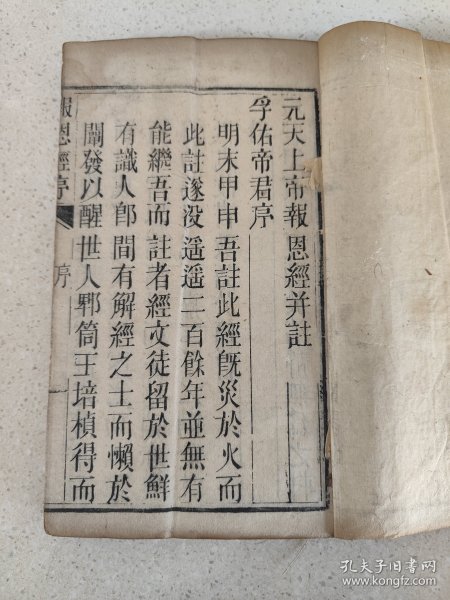 元天上帝報恩經并註
孚佑帝君序
明末甲申吾註此經旣災於火而
此註遂没遥遥二百餘年並無有
能繼吾而註者經文徒留於世鮮
有識人卽間有解經之士而懶於
闡發以醒世人郫筒王培楨得而
報恩經序
序
一
孔夫子旧书网
www.kongfz.com